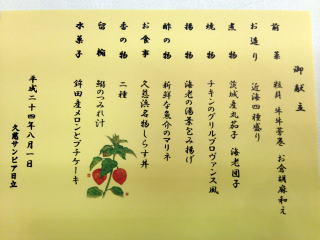 御献立
前菜 粒貝 牛牛蒡巻 お倉胡麻和え
お造り 近海四種盛り
煮物 茨城産丸茄子 海老団子
焼物 チキンのグリルプロヴァンス風
揚物 海老の湯葉包み揚げ
酢の物 新鮮な魚介のマリネ
お食事 久慈浜名物しらす丼
香の物 二種
留椀 鰯のつみれ汁
水菓子 鉾田産メロンとプチケーキ
平成二十四年八月一日
久慈サンピア日立